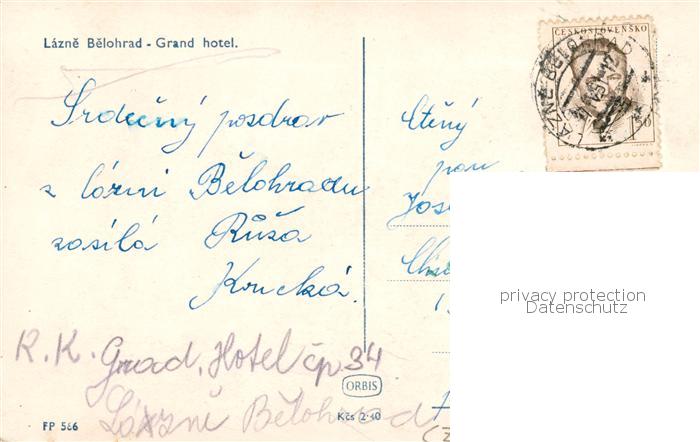 Lázně Bělohrad - Grand hotel.
Srdečný pozdrav
z lázní Bělohradu
zasílá Růža
Krucká.
R. K. Grad. Hotel čp. 34
Lázně Bělohrad
FP 566
ORBIS
Kčs 2·40
ČESKOSLOVENSKO
LÁZNĚ BĚLOHRAD
Ctěný
pan
Jos
privacy protection
Datenschutz